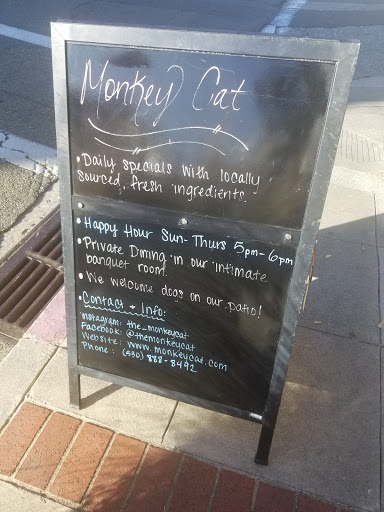 Monkey Cat
• Daily specials with locally
sourced, fresh ingredients.
• Happy Hour Sun-Thurs 5pm-6pm
• Private Dining in our intimate
banquet room.
• We welcome dogs on our patio!
• Contact + Info:
Instagram: the_monkeycat
Facebook: @themonkeycat
Website: www.monkeycat.com
Phone: (530) 888-8492